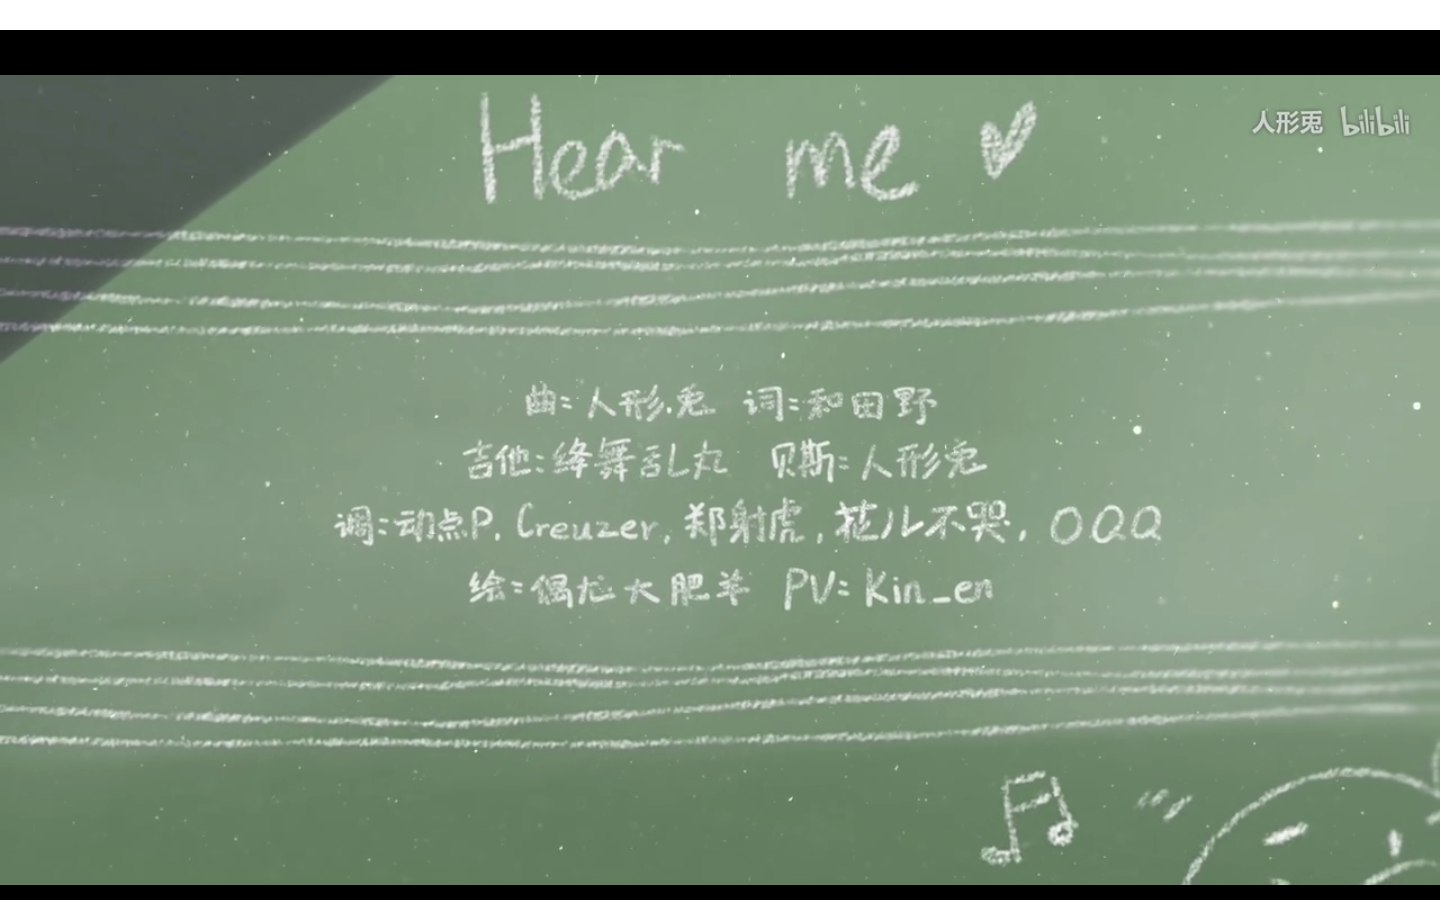 Hear me
人形兎 bilibili
曲:人形兎 词:和田野
吉他:绛舞乱丸 贝斯:人形兎
调:动点P, Creuzer, 郑射虎, 花儿不哭, OQQ
绘:偶尤大肥羊 PV:Kin_en